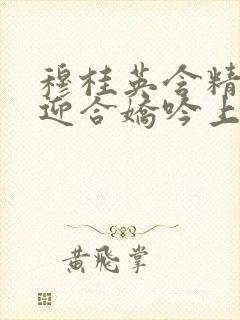 穆桂英含精
迎合嬌吟上
黄飛掌